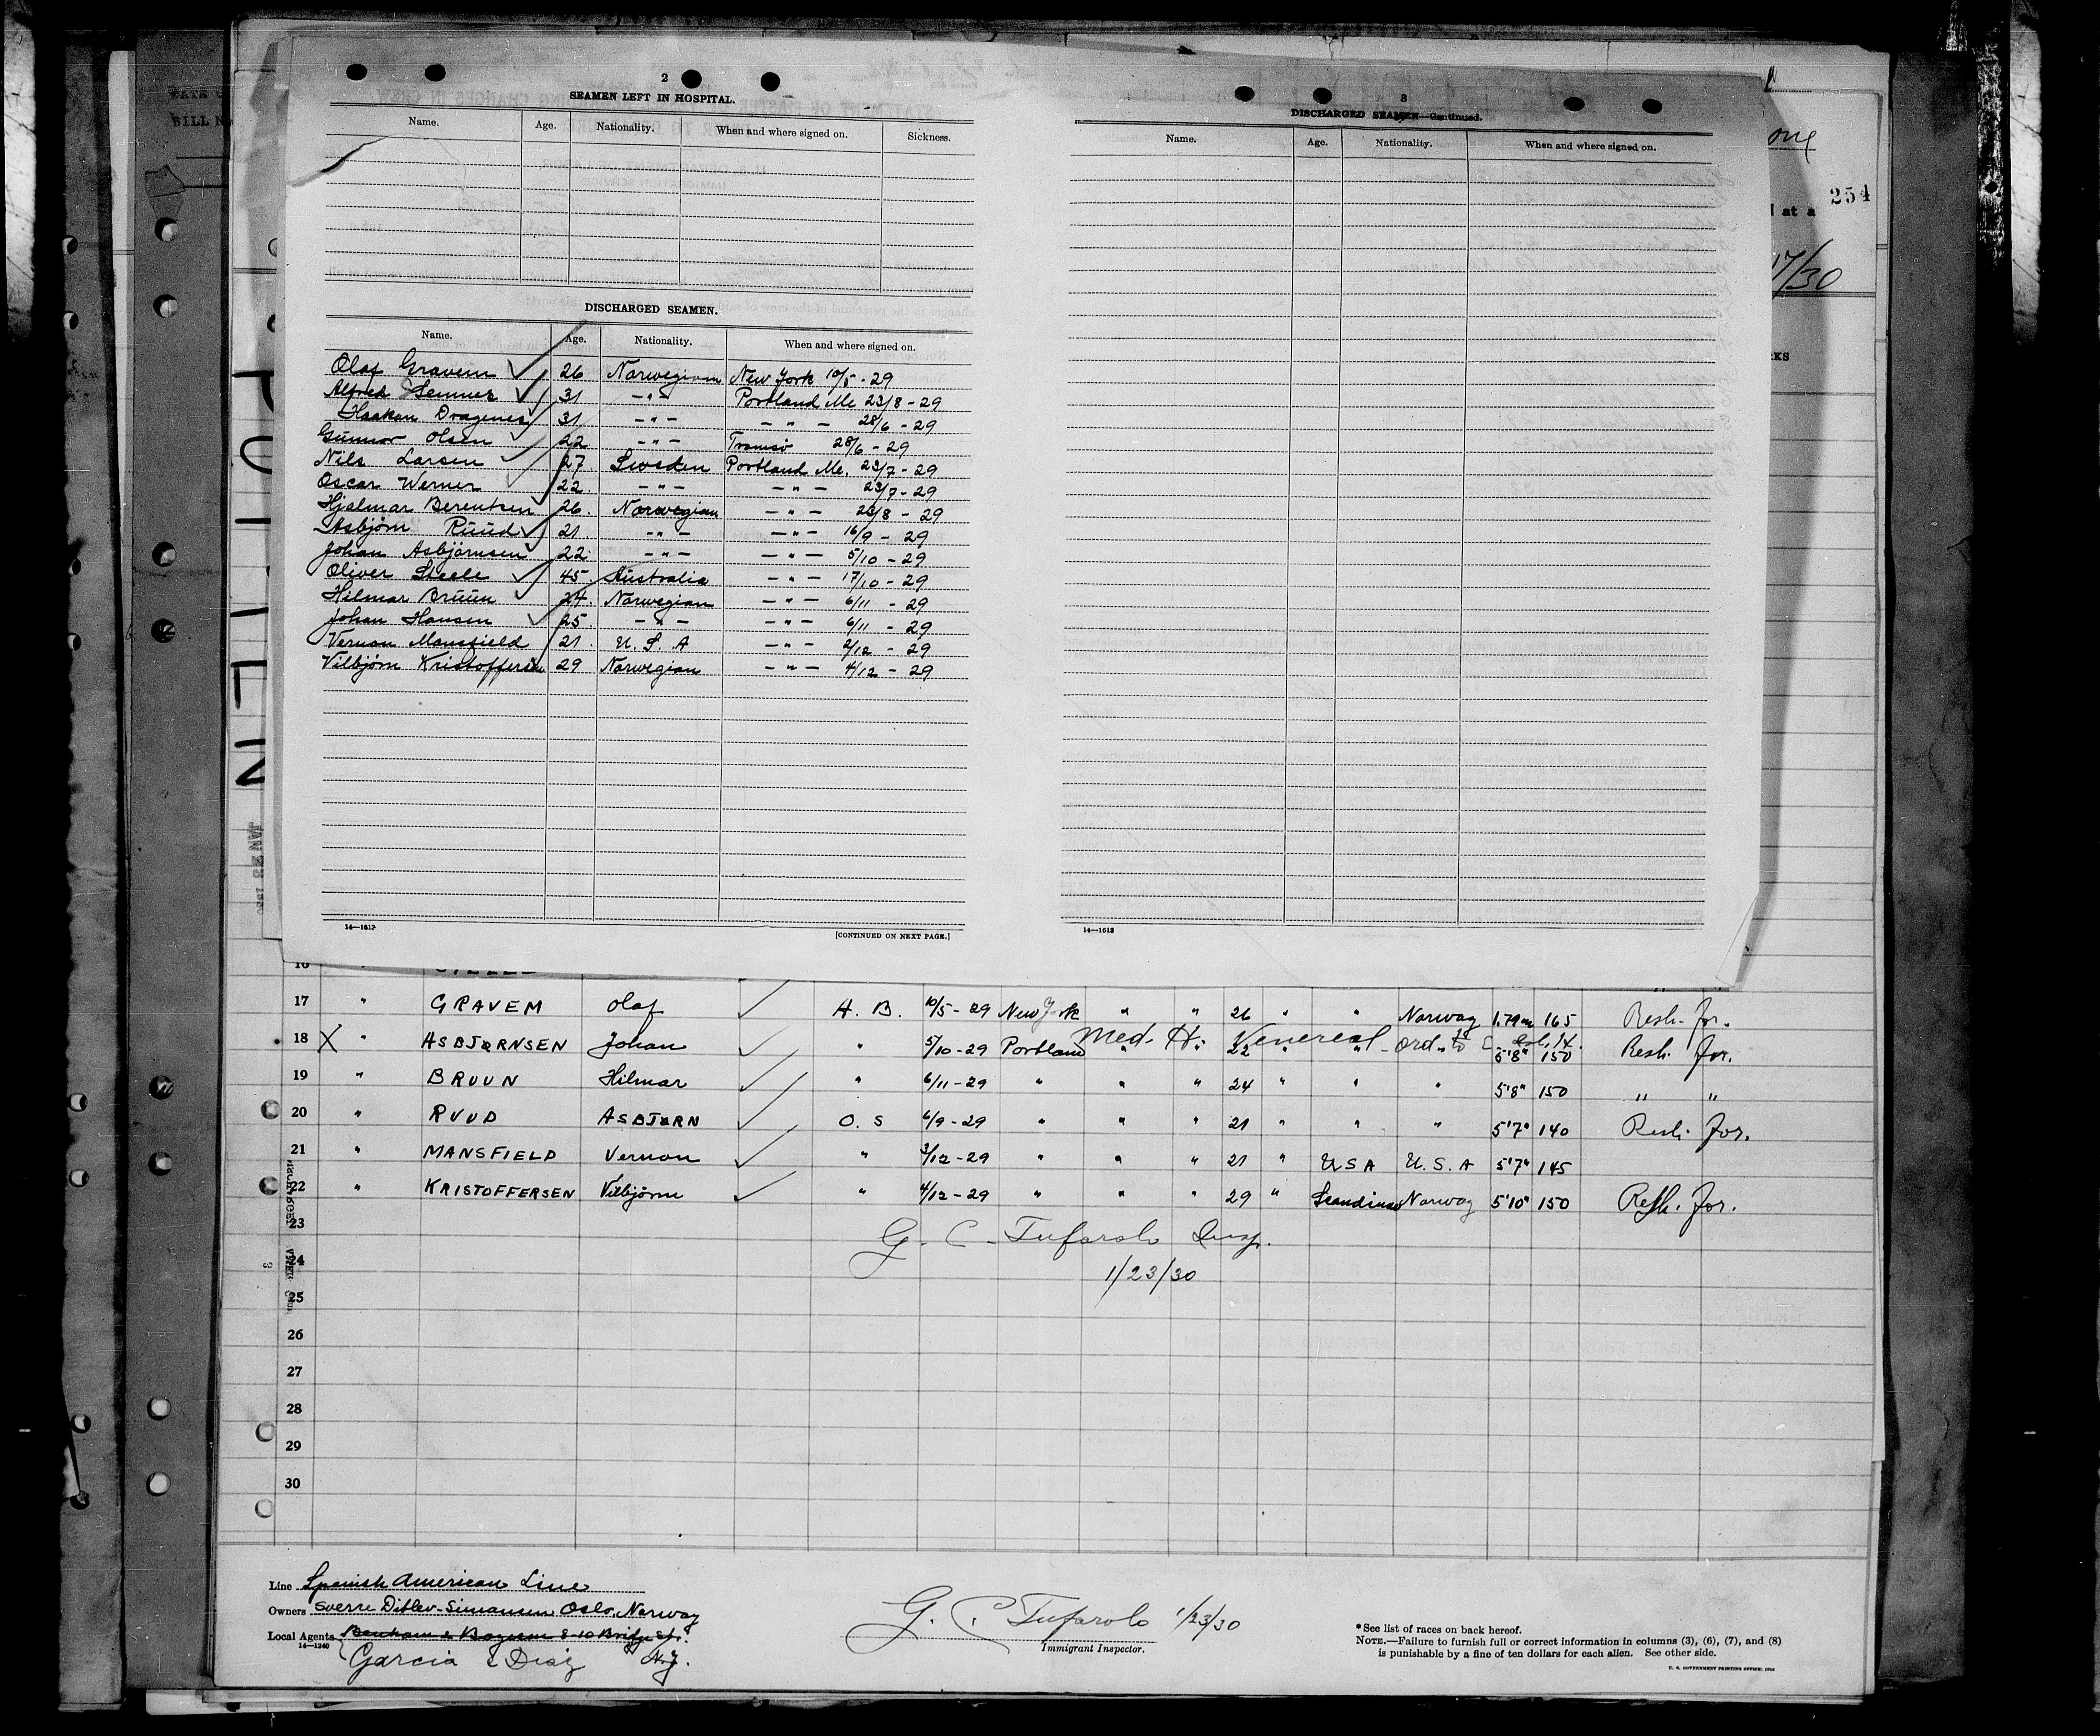 2
SEAMEN LEFT IN HOSPITAL.
Name. Age. Nationality. When and where signed on. Sickness.
DISCHARGED SEAMEN.
Name. Age. Nationality. When and where signed on.
Olaf Gravem 26 Norwegian New York 10/5 - 29
Alfred 31 -"- Portland Me 23/8 - 29
Haakan Dragenes 31 -"- - " - 28/6 - 29
Gunnar Olsen 22 -"- Tromsö 28/6 - 29
Nils Larsen 27 Sweden Portland Me. 23/7 - 29
Oscar Werner 22. -"- -"- 23/7 - 29
Hjalmar Berentsen 26. Norwegian -"- 23/8 - 29
Asbjørn Ruud 21. -"- -"- 16/9 - 29
Johan Asbjørnsen 22 -"- -"- 5/10 - 29
Oliver Steele 45 Australia -"- 17/10 - 29
Hilmar Bruun 24. Norwegian -"- 6/11 - 29
Johan Hansen 25. -"- -"- 6/11 - 29
Vernon Mansfield 21. U. S. A -"- 2/12 - 29
Vilbjørn Kristoffersen 29 Norwegian -"- 4/12 - 29
14—1613
[CONTINUED ON NEXT PAGE.]
3
DISCHARGED SEAMEN—Continued.
Name. Age. Nationality. When and where signed on.
14—1613
254
at a
17/30
KS
PUTILIN
16
17 " GRAVEM Olaf A. B. 10/5 - 29 New York " " 26 " " Norway 1.79m 165 Resh. for.
Med. H. Venereal ord. to
18 X " ASBJØRNSEN Johan " 5/10 - 29 Portland " " 22 " " " 5'8" 150 Resh. for.
19 " BRUUN Hilmar " 6/11 - 29 " " " 24 " " " 5'8" 150 " "
20 " RUUD ASBJØRN O. S 6/9 - 29 " " " 21 " " " 5'7" 140 Resh. for.
21 " MANSFIELD Vernon " 3/12 - 29 " " " 21 " U S A U. S. A 5'7" 145
22 " KRISTOFFERSEN Vilbjørn " 4/12 - 29 " " " 29 " Scandinav Norway 5'10" 150 Resh. for.
23 G. C. Tufarolo Insp.
24 1/23/30
25
26
27
28
29
30
Line Spanish American Line
Owners Sverre Ditlev-Simonsen, Oslo, Norway
Local Agents Benham & Boyesen 8-10 Bridge St.
14—1240
Garcia & Diaz N.Y.
G. C. Tufarolo 1/23/30
Immigrant Inspector.
*See list of races on back hereof.
NOTE.—Failure to furnish full or correct information in columns (3), (6), (7), and (8)
is punishable by a fine of ten dollars for each alien. See other side.